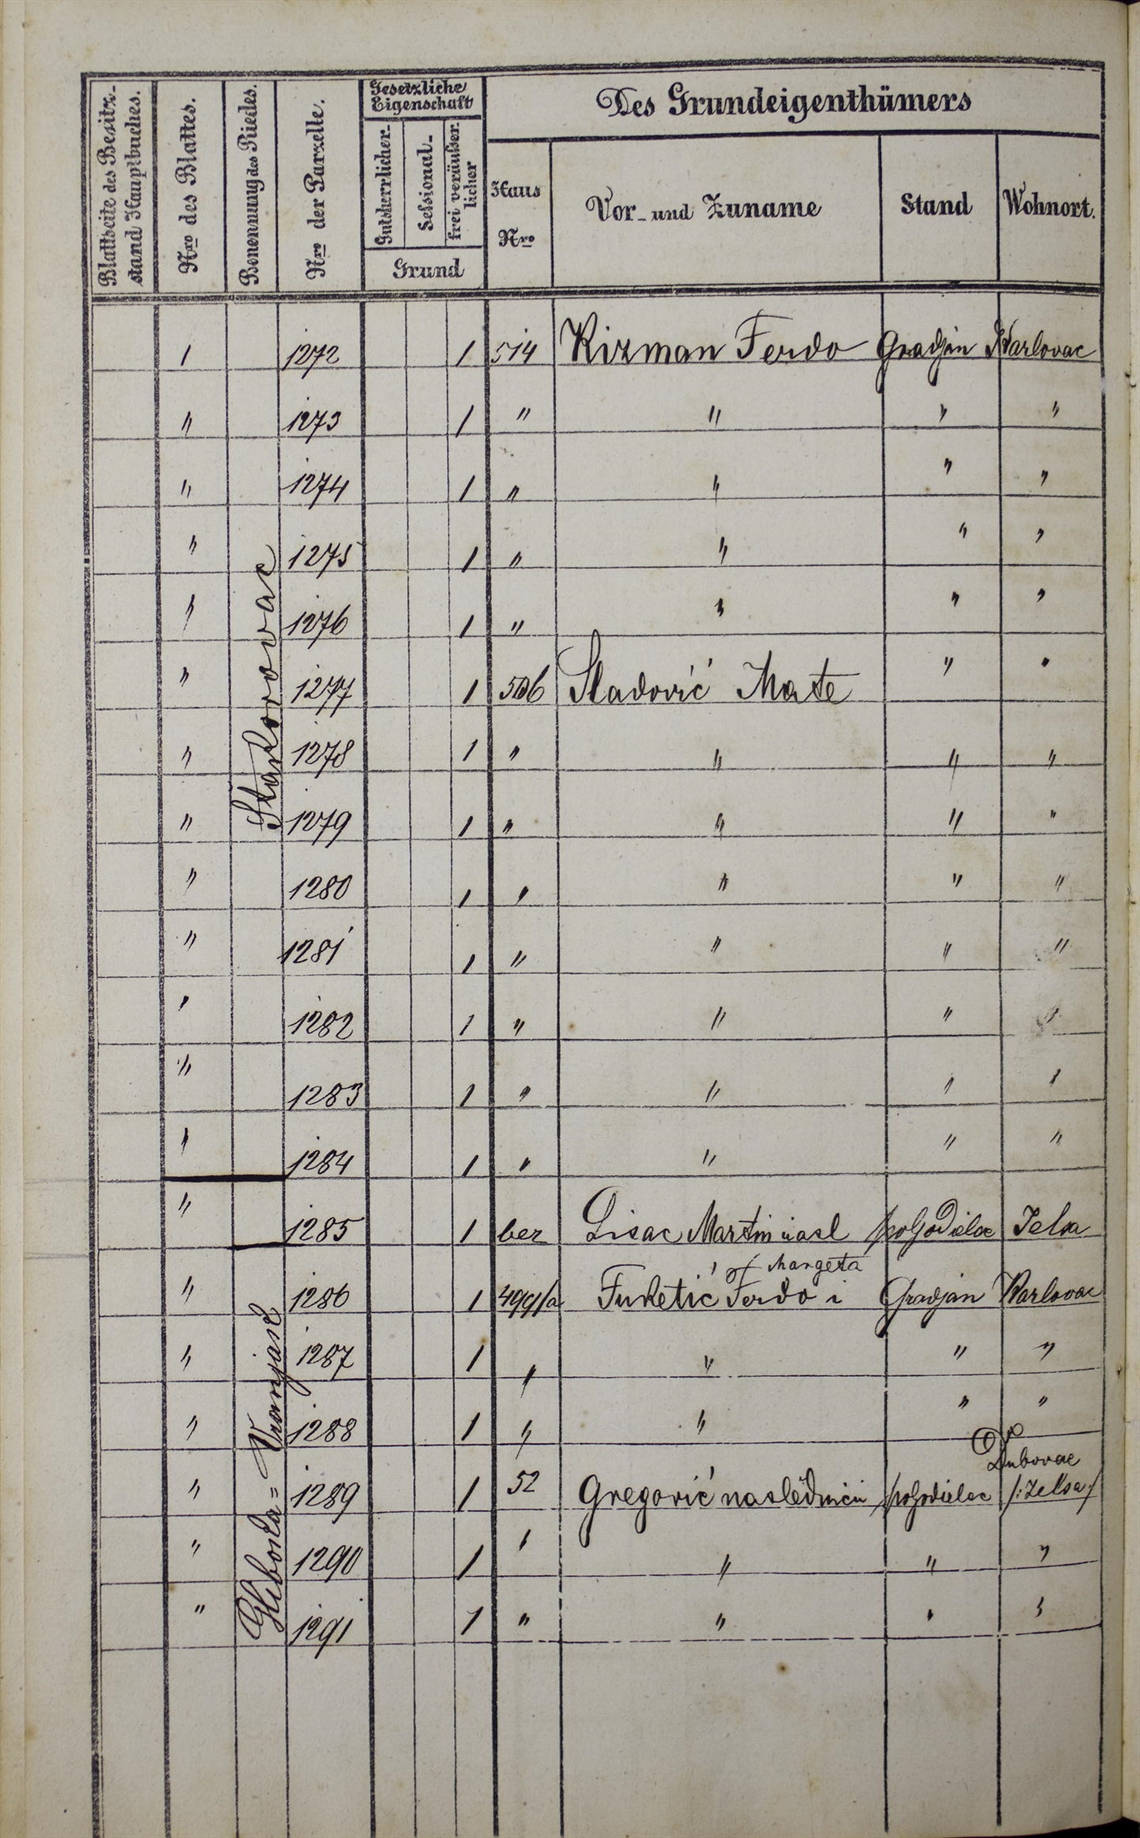 Blattseite des Besitz-
stand Hauptbuches.
Nro des Blattes.
Benennung des Riedes.
Nro der Parzelle.
Gesetzliche
Eigenschaft
Gutsherrlicher.
Sessional-
frei veräußer-
licher
Grund
Des Grundeigenthümers
Haus
Nro
Vor- und Zuname
Stand
Wohnort.
1 1272 1 514 Kizman Ferdo Gradjan Karlovac
" 1273 1 " " " "
" 1274 1 " " " "
" 1275 1 " " " "
" 1276 1 " " " "
" 1277 1 Sladović Mate " "
" 1278 1 " " " "
" 1279 1 " " " "
" 1280 1 " " " "
" 1281 1 " " " "
" 1282 1 " " " "
" 1283 1 " " " "
" 1284 1 " " " "
" 1285 1 bez Lisac Martin poljodielac
Margeta
" 1286 1 499/a Furetić Ferdo i Gradjan Karlovac
" 1287 1 " " " "
" 1288 1 " " " "
Dubovac
" 1289 1 52 Gregorić naslednici poljodielac
" 1290 1 " " " "
" 1291 1 " " " "